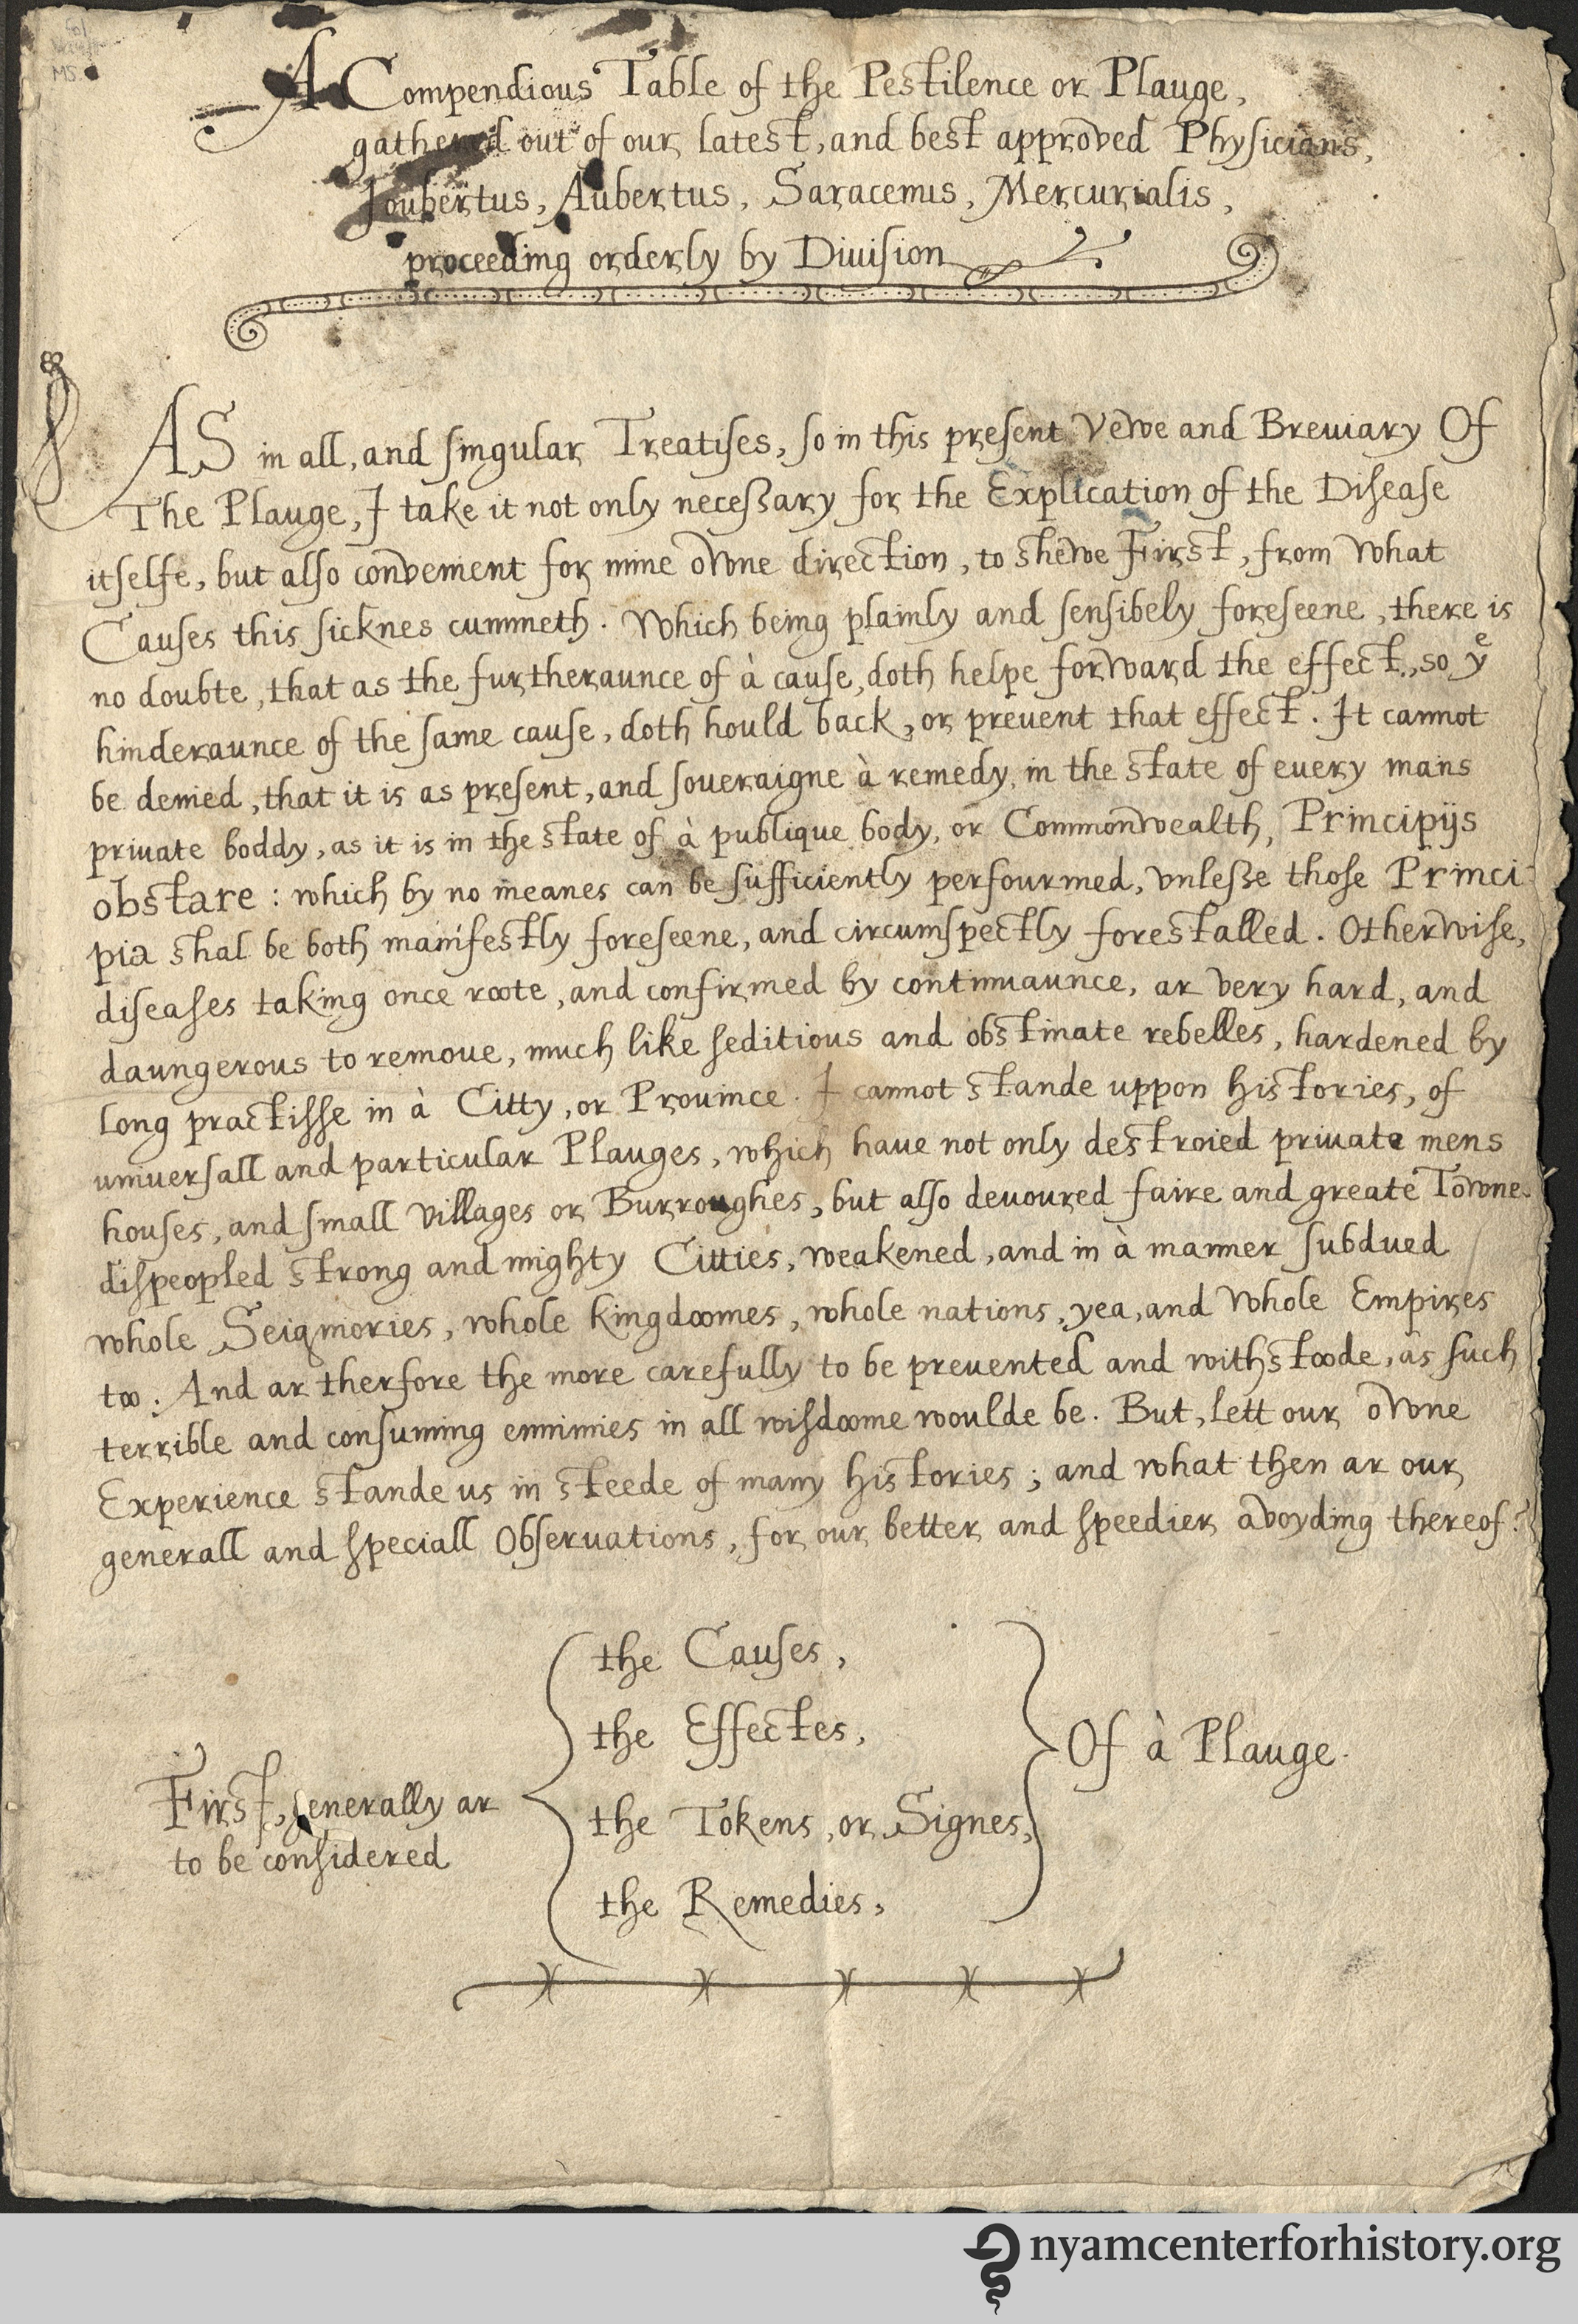 A Compendious Table of the Pestilence or Plauge,
gathered out of our latest, and best approved Physicians,
Joubertus, Aubertus, Saracenus, Mercurialis,
proceeding orderly by Diuision
AS in all, and singular Treatises, so in this present Vewe and Breuiary Of
The Plauge, I take it not only necessary for the Explication of the Disease
itselfe, but also convenient for mine owne direction, to shewe First, from what
Causes this sicknes cummeth. Which being plainly and sensibely foreseene, there is
no doubte, that as the furtheraunce of à cause, doth helpe forward the effect, so yᵉ
hinderaunce of the same cause, doth hould back, or preuent that effect. It cannot
be denied, that it is as present, and soueraigne à remedy, in the state of euery mans
priuate boddy, as it is in the state of à publique body, or Commonwealth, Principijs
obstare: which by no meanes can be sufficiently perfourmed, vnlesse those Princi-
pia shal be both manifestly foreseene, and circumspectly forestalled. Otherwise,
diseases taking once roote, and confirmed by continuaunce, ar very hard, and
daungerous to remoue, much like seditious and obstinate rebelles, hardened by
long practisse in à Citty, or Prouince. I cannot stande uppon histories, of
uniuersall and particular Plauges, which haue not only destroied priuate mens
houses, and small villages or Burroughes, but also deuoured faire and greate Towne
dispeopled strong and mighty Citties, weakened, and in à manner subdued
whole Seignories, whole kingdoomes, whole nations, yea, and whole Empires
too. And ar therfore the more carefully to be preuented and withstoode, as such
terrible and consuming ennimies in all wisdoome woulde be. But, lett our owne
Experience stande us in steede of many histories; and what then ar our
generall and speciall Obseruations, for our better and speedier avoyding thereof?
First, generally ar
to be considered
the Causes,
the Effectes,
the Tokens, or Signes,
the Remedies,
Of à Plauge.
nyamcenterforhistory.org